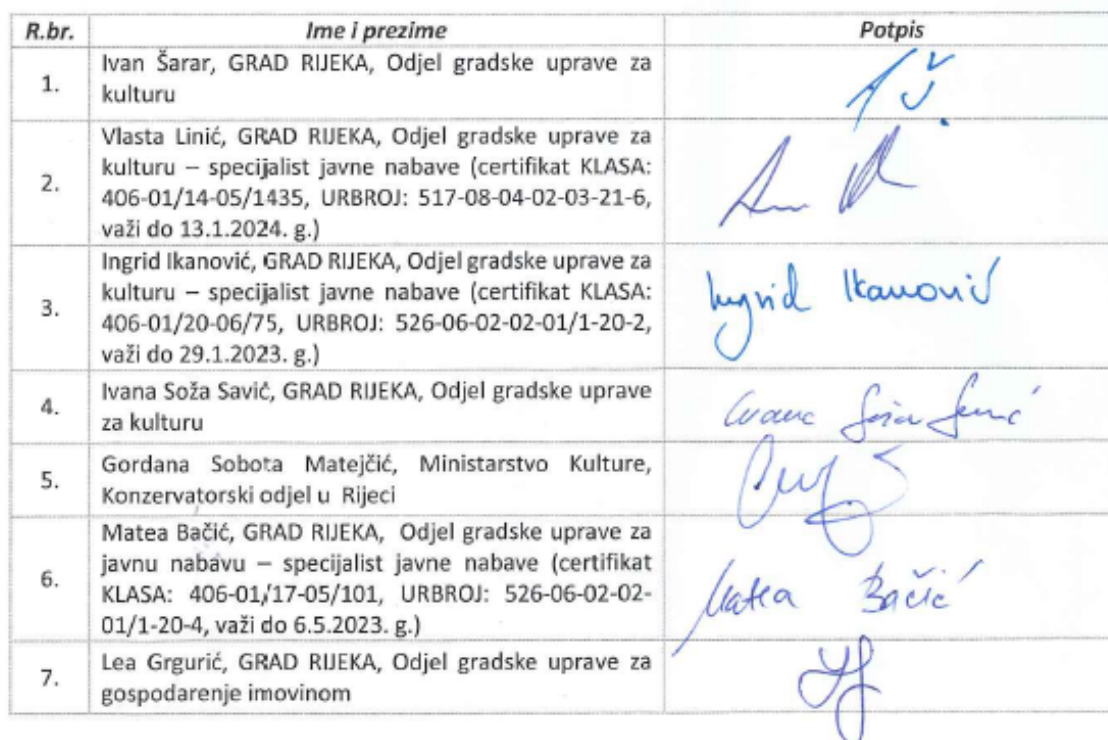 R.br. Ime i prezime Potpis
1. Ivan Šarar, GRAD RIJEKA, Odjel gradske uprave za
kulturu
2. Vlasta Linić, GRAD RIJEKA, Odjel gradske uprave za
kulturu – specijalist javne nabave (certifikat KLASA:
406-01/14-05/1435, URBROJ: 517-08-04-02-03-21-6,
važi do 13.1.2024. g.)
3. Ingrid Ikanović, GRAD RIJEKA, Odjel gradske uprave za
kulturu – specijalist javne nabave (certifikat KLASA:
406-01/20-06/75, URBROJ: 526-06-02-02-01/1-20-2,
važi do 29.1.2023. g.)
Ingrid Ikanović
4. Ivana Soža Savić, GRAD RIJEKA, Odjel gradske uprave
za kulturu
Ivana Soža Savić
5. Gordana Sobota Matejčić, Ministarstvo Kulture,
Konzervatorski odjel u Rijeci
6. Matea Bačić, GRAD RIJEKA, Odjel gradske uprave za
javnu nabavu – specijalist javne nabave (certifikat
KLASA: 406-01/17-05/101, URBROJ: 526-06-02-02-
01/1-20-4, važi do 6.5.2023. g.)
Matea Bačić
7. Lea Grgurić, GRAD RIJEKA, Odjel gradske uprave za
gospodarenje imovinom